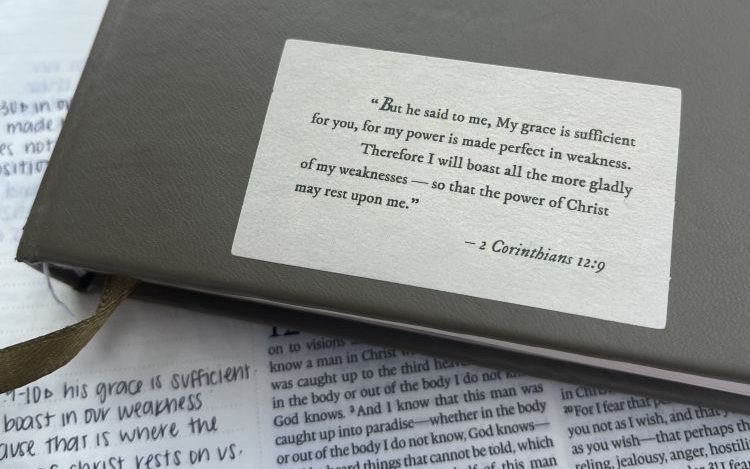 “But he said to me, My grace is sufficient
for you, for my power is made perfect in weakness.
Therefore I will boast all the more gladly
of my weaknesses — so that the power of Christ
may rest upon me.”
— 2 Corinthians 12:9
in
made
not
his grace is sufficient
boast in our weakness
that is where the
christ rests on us.
12
on to visions
know a man in Christ
was caught up to the third
in the body or out of the body I do not
God knows. ³And I know that this man was
caught up into paradise—whether in the body
or out of the body I do not know, God knows—
heard things that cannot be told, which
of this man
in
²⁰For I fear that
you not as I wish, and that
as you wish—that perhaps
jealousy, anger,